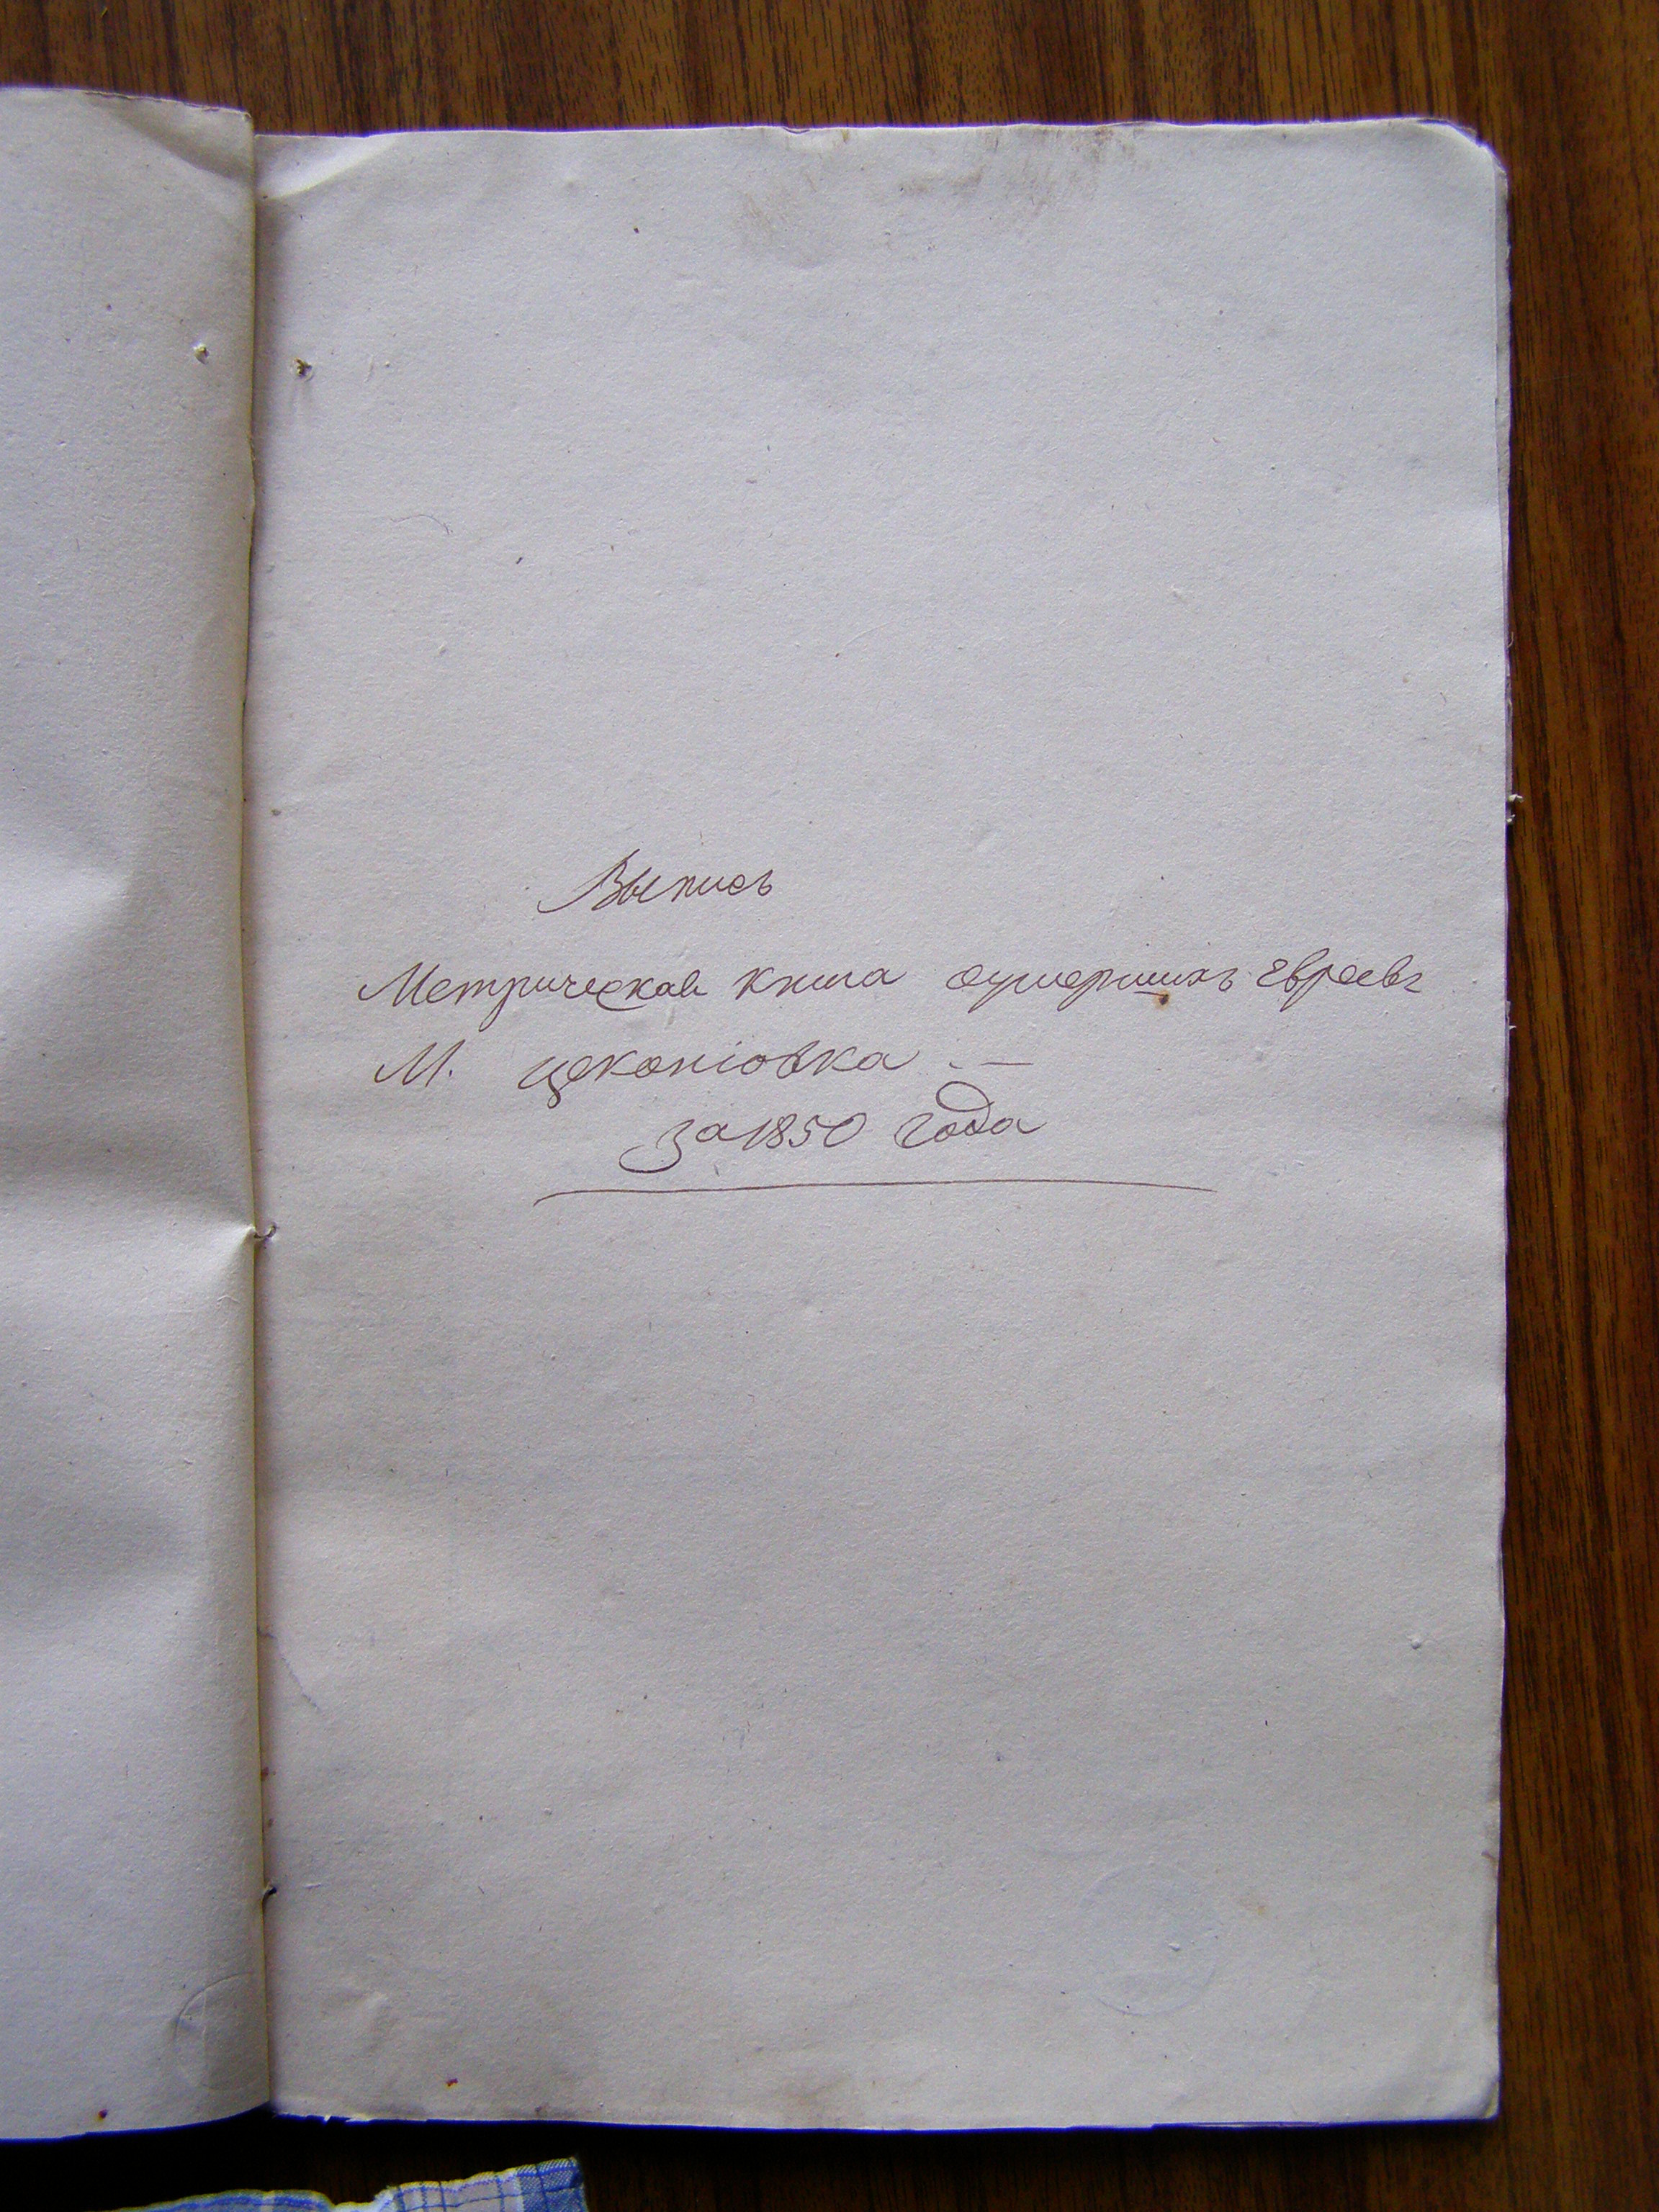 Выпись
Метрическая книга оумершихъ Евреевъ
М. Цеконіовка —
за 1850 года